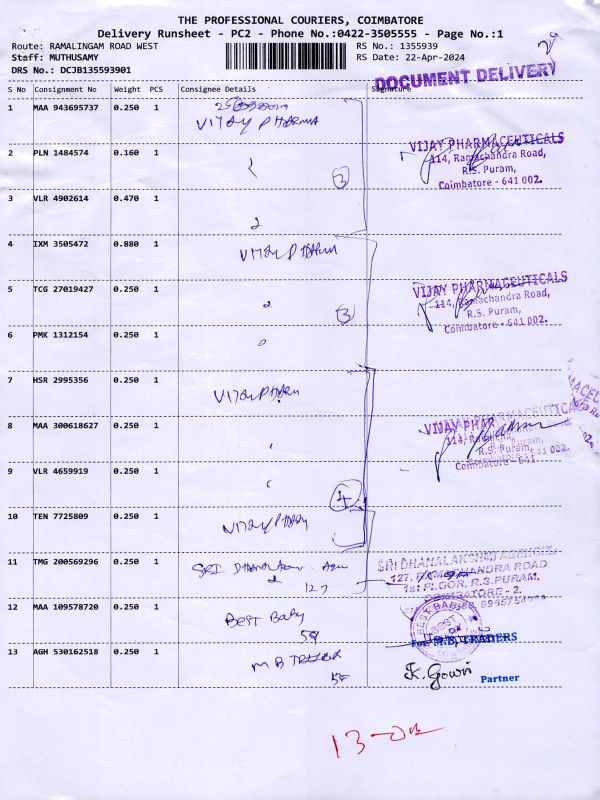 THE PROFESSIONAL COURIERS, COIMBATORE
Delivery Runsheet - PC2 - Phone No.:0422-3505555 - Page No.:1
Route: RAMALINGAM ROAD WEST
RS No.: 1355939
Staff: MUTHUSAMY
RS Date: 22-Apr-2024
DRS No.: DCJB135593901
DOCUMENT DELIVERY
S No Consignment No Weight PCS Consignee Details Signature
1 MAA 943695737 0.250 1
VIJAY PHARMA
2 PLN 1484574 0.160 1
3
VIJAY PHARMACEUTICALS
114, Ramachandra Road,
R.S. Puram,
Coimbatore - 641 002.
3 VLR 4902614 0.470 1
4 IXM 3505472 0.880 1
VIJAY PHARMA
5 TCG 27019427 0.250 1
3
VIJAY PHARMACEUTICALS
114, Ramachandra Road,
R.S. Puram,
Coimbatore - 641 002.
6 PMK 1312154 0.250 1
7 HSR 2995356 0.250 1
VIJAY PHARM
8 MAA 300618627 0.250 1
VIJAY PHARMACEUTICALS
R.S. Puram,
Coimbatore - 641
9 VLR 4659919 0.250 1
4
10 TEN 7725809 0.250 1
VIJAY PHARM
11 TMG 200569296 0.250 1
SRI
127
SRI DHANALAKSHMI AGENCIE
127, RAMACHANDRA ROAD
1st FLOOR, R.S.PURAM,
COIMBATORE - 2.
12 MAA 109578720 0.250 1
BEST Baby
BEST BABY
For M.B. TRADERS
13 AGH 530162518 0.250 1
M B
K. Gowri
Partner
13-